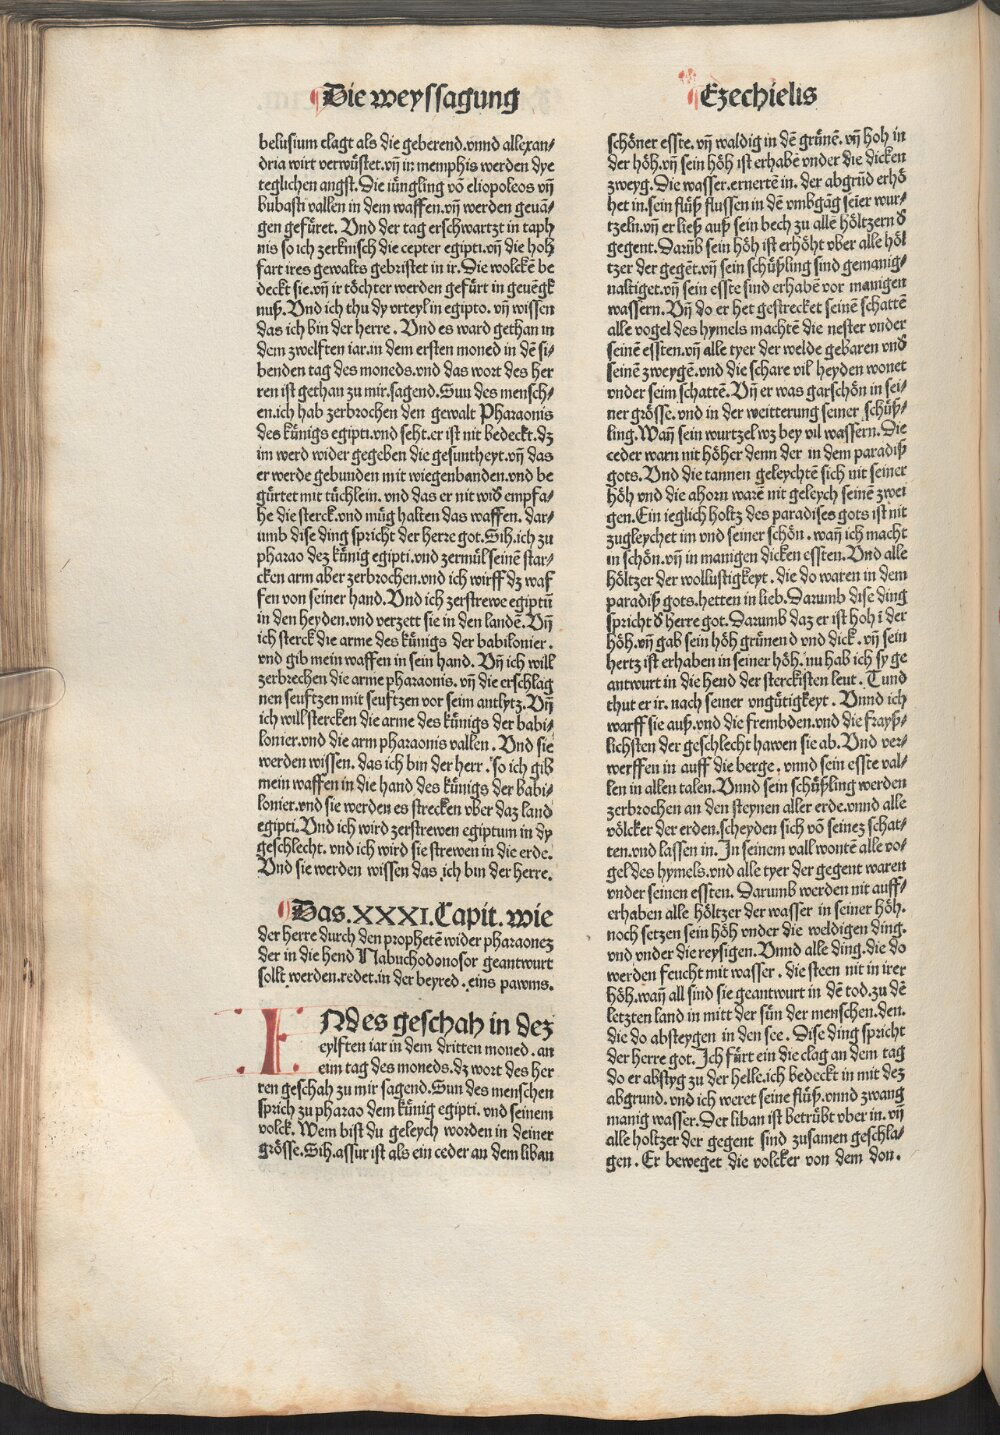 Die weyssagung
Ezechielis
belusium clagt als die geberend.vnnd allexan⸗
dria wirt verwüstet.vñ in memphis werden dye
teglichen angst.Die iüngling võ eliopoleos vñ
bubasti vallen in dem waffen.vñ werden geuã⸗
gen gefüret. Vnd der tag erschwartzt in taph
nis so ich zerknisch die cepter egipti.vñ die hoh
fart ires gewalts gebristet in ir.Die wolckẽ be
deckt sie.vñ ir töchter werden gefürt in geuẽgk
nuß.Vnd ich thu dy vrteyl in egipto.vñ wissen
das ich bin der herre. Vnd es ward gethan in
dem zwelften iar.in dem ersten moned in dẽ si⸗
benden tag des moneds.vnd das wort des her
ren ist gethan zu mir.sagend.Sun des mensch⸗
en.ich hab zerbrochen den gewalt Pharaonis
des künigs egipti.vnd seht.er ist nit bedeckt.dz
im werd wider gegeben die gesuntheyt.vñ das
er werde gebunden mit wiegenbanden.vnd be
gürtet mit tüchlein.vnd das er nit wid᷑ empfa⸗
he die sterck.vnd müg halten das waffen. dar⸗
umb dise ding spricht der herre got.Sih.ich zu
pharao dez künig egipti.vnd zermül seinẽ star⸗
cken arm aber zerbrochen.vnd ich wirff dz waf
fen von seiner hand.Vnd ich zerstrewe egiptũ
in den heyden.vnd verzett sie in den landẽ.Vñ
ich sterck die arme des künigs der babilonier.
vnd gib mein waffen in sein hand. Vñ ich will
zerbrechen die arme pharaonis.vñ die erschlag
nen seuftzen mit seuftzen vor seim antlytz.Vñ
ich will stercken die arme des künigs der babi⸗
lonier.vnd die arm pharaonis vallen. Vnd sie
werden wissen.das ich bin der herr.so ich gib
mein waffen in die hand des künigs der babi⸗
lonier.vnd sie werden es strecken vber daz land
egipti.Vnd ich wird zerstrewen egiptum in dy
geschlecht.vnd ich wird sie strewen in die erde.
Vnd sie werden wissen das ich bin der herre.
Das.XXXI.Capit.wie
der herre durch den prophetẽ wider pharaonez
der in die hend Nabuchodonosor geantwurt
sollt werden.redet.in der beyred.eins pawms.
VNd es geschah in dez
eylften iar in dem dritten moned.an
eim tag des moneds.dz wort des her
ren geschah zu mir sagend.Sun des menschen
sprich zu pharao dem künig egipti.vnd seinem
volck.Wem bist du geleych worden in deiner
grösse.Sih.assur ist als ein ceder an dem liban
schöner esste.vñ waldig in dẽ grünẽ.vñ hoh in
der höh.vñ sein höh ist erhabẽ vnder die dicken
zweyg.Die wasser.ernertẽ in.der abgrũd erhö
het in.sein flüß flussen in dẽ vmbgãg seier wur⸗
tzeln.vñ er ließ auß sein bech zu allẽ höltzern d᷑
gegent.Darüb sein höh ist erhöht vber alle höl
tzer der gegẽt.vñ sein schüßling sind gemanig⸗
naltiget.vñ sein esste sind erhabẽ vor manigen
wassern.Vñ do er het gestrecket seinẽ schattẽ
alle vogel des hymels machtẽ die nester vnder
seinẽ essten.vñ alle tyer der welde gebaren vnd᷑
seinẽ zweygẽ.vnd die schare vil heyden wonet
vnder seim schattẽ.Vñ er was garschön in sei⸗
ner grösse.vnd in der weitterung seiner schüß⸗
ling.Wañ sein wurtzel wz bey vil wassern.Die
ceder warn nit höher denn der in dem paradiß
gots.Vnd die tannen geleychtẽ sich nit seiner
höh vnd die ahorn warẽ nit geleych seinẽ zwei
gen.Ein ieglich holtz des paradises gots ist nit
zugleychet im vnd seiner schön.wañ ich macht
in schön.vñ in manigen dicken essten.Vnd alle
höltzer der wollustigkeyt.die do waren in dem
paradiß gots.hetten in lieb.Darumb dise ding
spricht d᷑ herre got.Darumb daz er ist hoh ĩ der
höh.vñ gab sein höh grünend vnd dick.vñ sein
hertz ist erhaben in seiner höh.nu hab ich sy ge
antwurt in die hend der sterckisten leut.Tund
thut er ir.nach seiner vngütigkeyt. Vnnd ich
warff sie auß.vnd die frembden.vnd die frayß⸗
lichsten der geschlecht hawen sie ab.Vnd ver⸗
werffen in auff die berge.vnnd sein esste val⸗
len in allen talen.Vnnd sein schüßling werden
zerbrochen an den steynen aller erde.vnnd alle
völcker der erden.scheyden sich võ seinez schat⸗
ten.vnd lassen in.In seinem vall wontẽ alle vo⸗
gel des hymels.vnd alle tyer der gegent waren
vnder seinen essten. Darumb werden nit auff⸗
erhaben alle höltzer der wasser in seiner höh.
noch setzen sein höh vnder die weldigen ding.
vnd vnder die reysigen.Vnnd alle ding.die do
werden feucht mit wasser.die steen nit in irer
höh.wañ all sind sie geantwurt in dẽ tod.zu dẽ
letzten land in mitt der sün der menschen.den.
die do absteygen in den see. Dise ding spricht
der herre got.Ich fürt ein die clag an dem tag
do er abstyg zu der helle.ich bedeckt in mit dez
abgrund.vnd ich weret seine flüß.vnnd zwang
manig wasser.Der liban ist betrübt vber in.vñ
alle holtzer der gegent sind zusamen geschla⸗
gen. Er beweget die volcker von dem don.